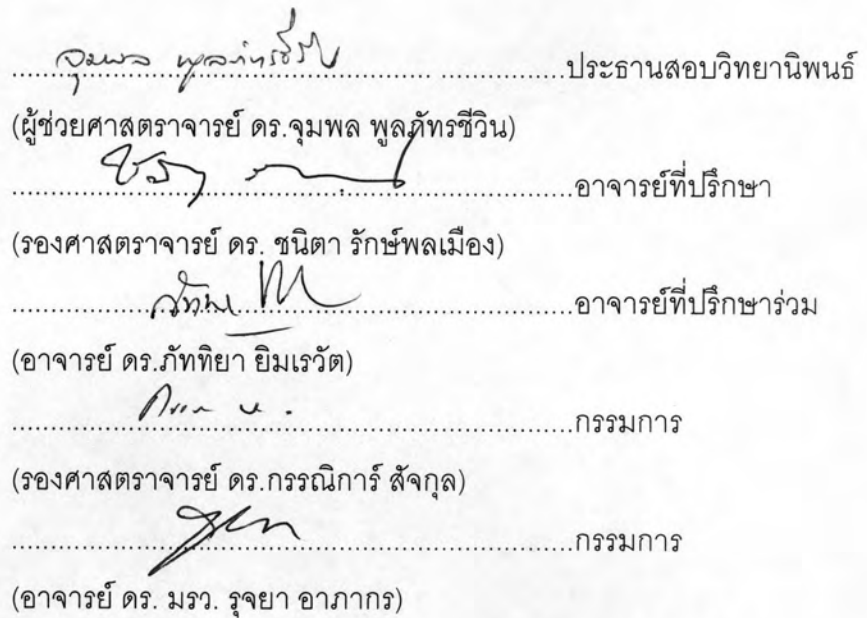 จุมพล พูลภัทรชีวิน ประธานสอบวิทยานิพนธ์
(ผู้ช่วยศาสตราจารย์ ดร.จุมพล พูลภัทรชีวิน)
อาจารย์ที่ปรึกษา
(รองศาสตราจารย์ ดร. ชนิตา รักษ์พลเมือง)
อาจารย์ที่ปรึกษาร่วม
(อาจารย์ ดร.ภัททิยา ยิมเรวัต)
กรรมการ
(รองศาสตราจารย์ ดร.กรรณิการ์ สัจกุล)
กรรมการ
(อาจารย์ ดร. มรว. รุจยา อาภากร)